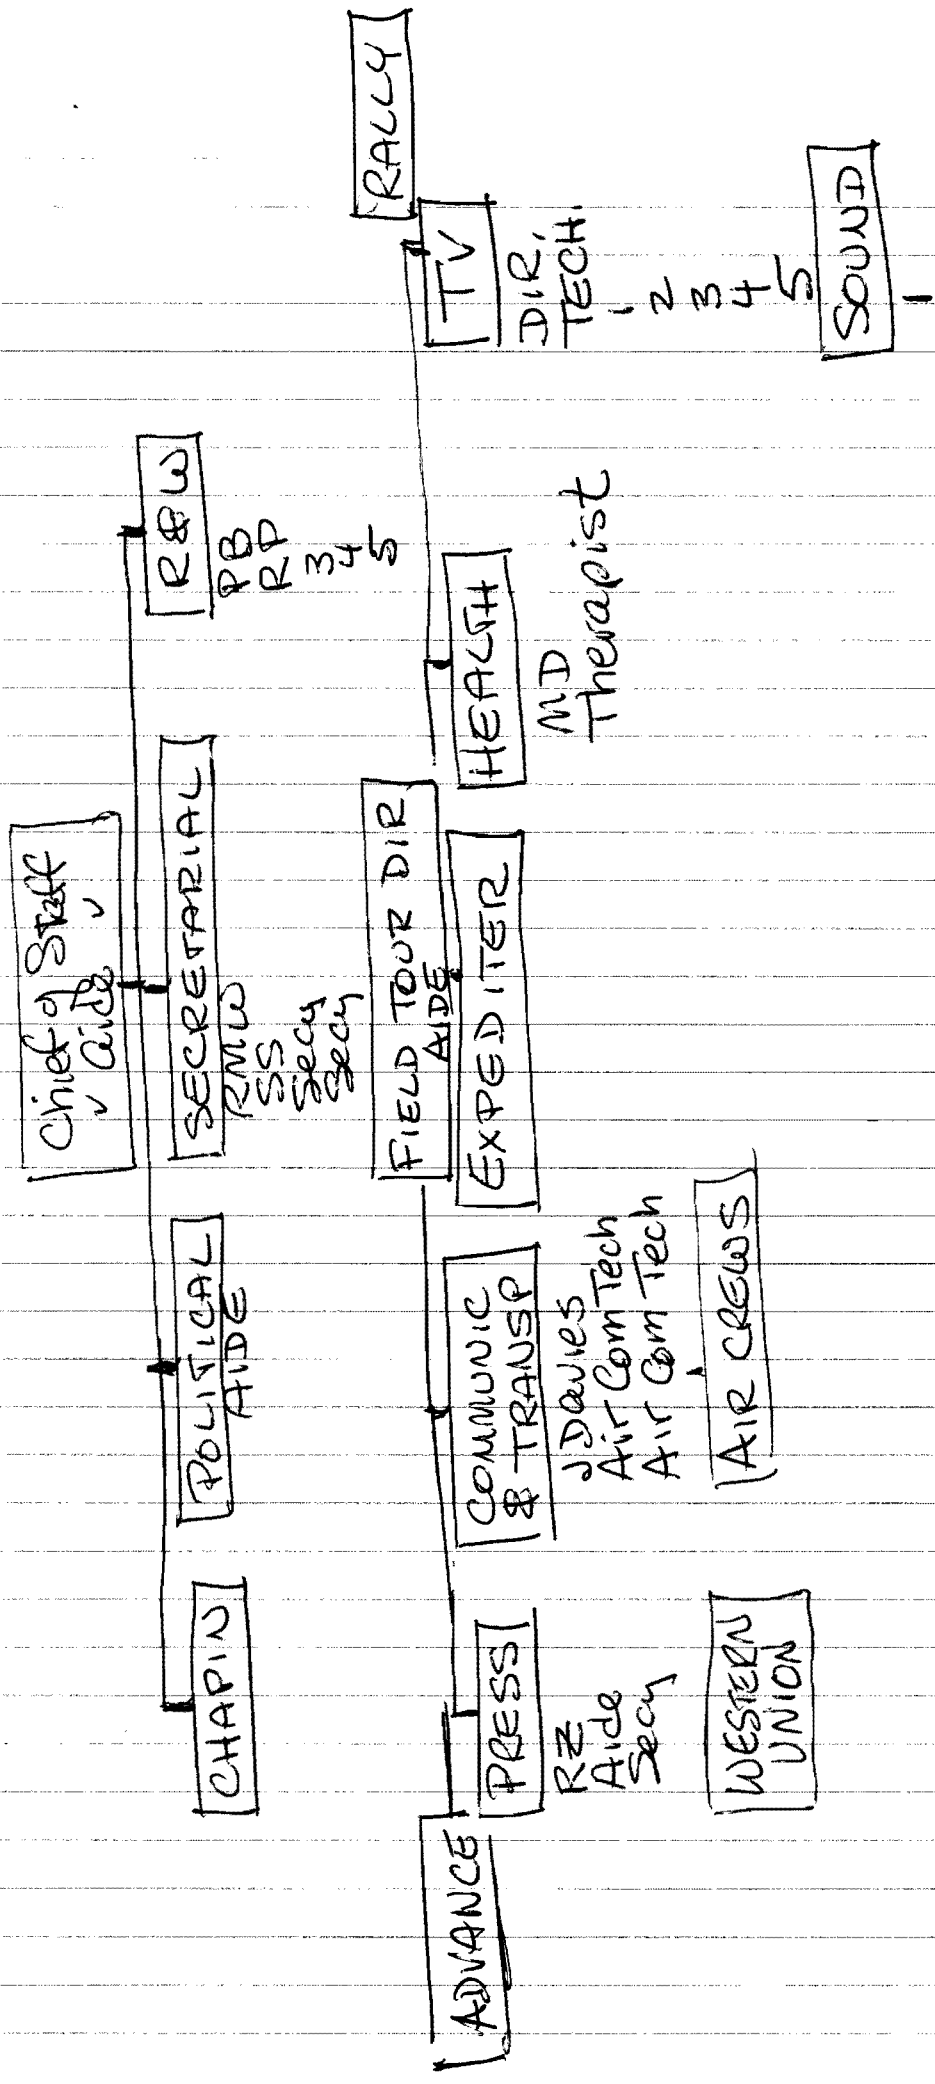 Chief of Staff
✓ aide ✓
CHAPIN
POLITICAL
AIDE
SECRETARIAL
RMW
SS
Secy
Secy
R&W
PB
RP
3
4
5
FIELD TOUR DIR
AIDE
ADVANCE
PRESS
RZ
Aide
Secy
WESTERN
UNION
COMMUNIC
& TRANSP
J Davies
Air Com Tech
Air Com Tech
AIR CREWS
EXPEDITER
HEALTH
MD
Therapist
RALLY
TV
DIR.
TECH.
1
2
3
4
5
SOUND
1